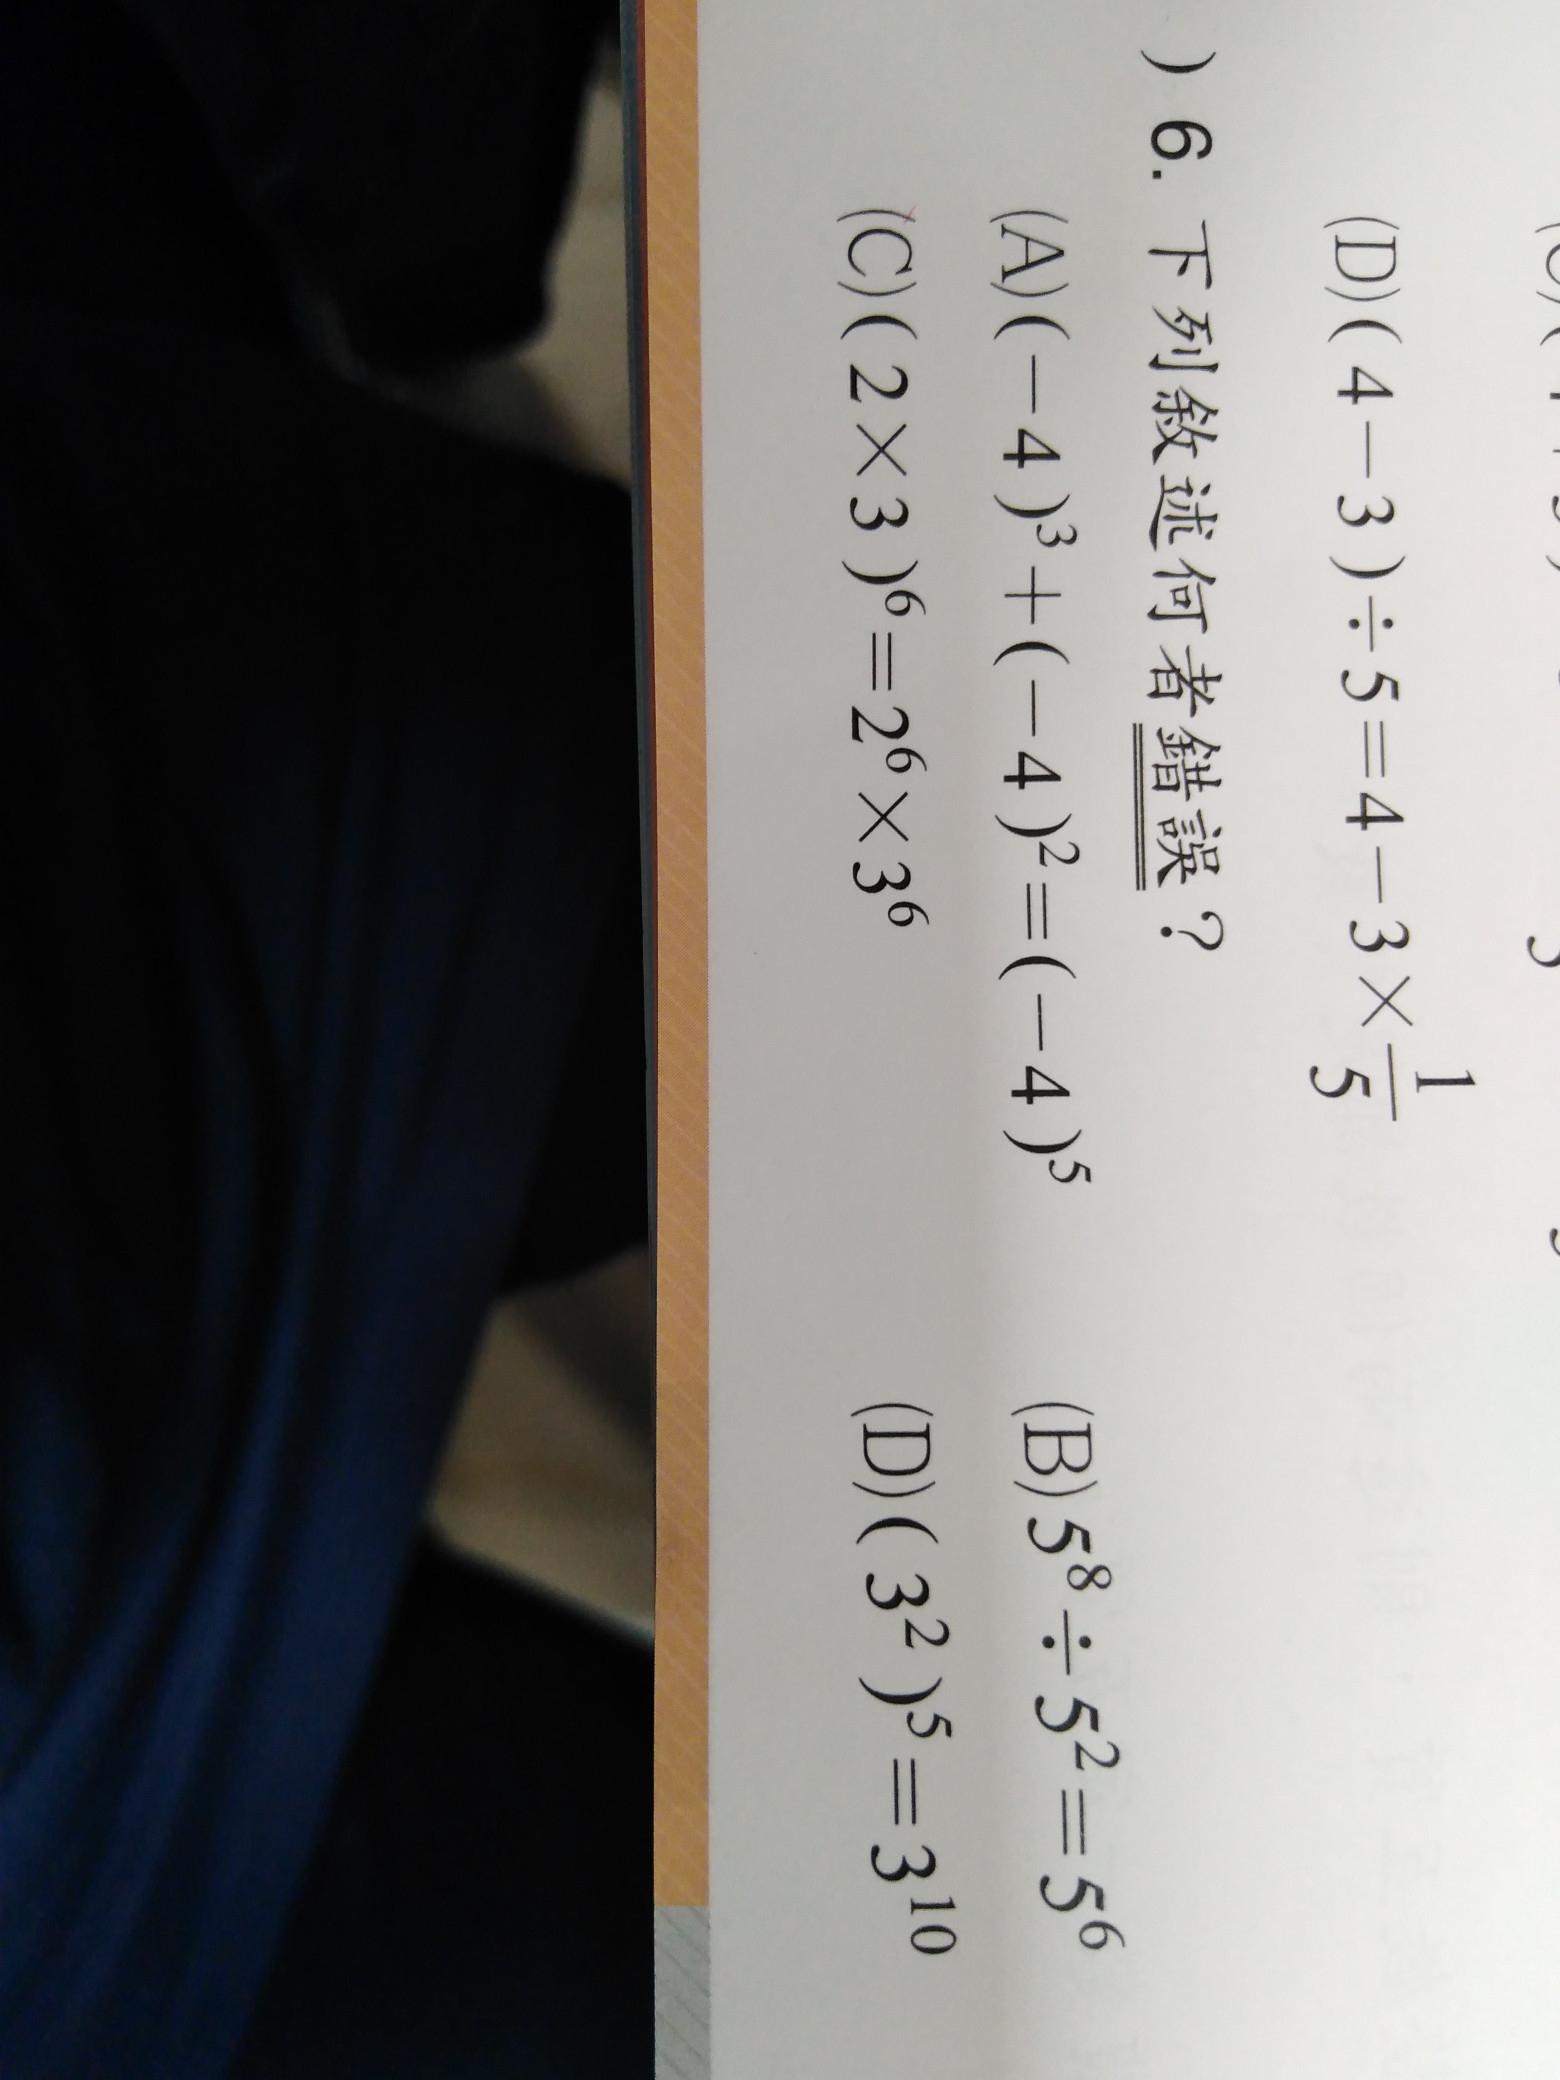 (D)(4－3)÷5＝4－3×1/5
)6. 下列敘述何者錯誤？
(A)(－4)³＋(－4)²＝(－4)⁵ (B)5⁸÷5²＝5⁶
(C)(2×3)⁶＝2⁶×3⁶ (D)(3²)⁵＝3¹⁰